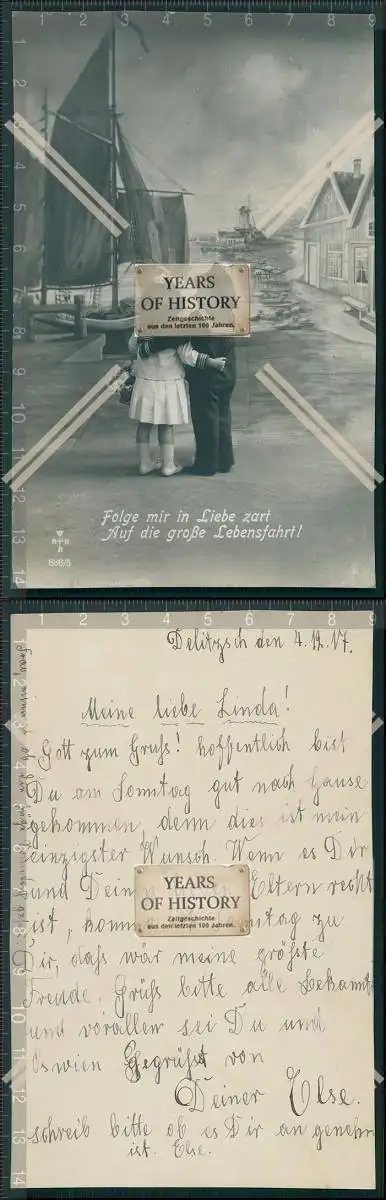 YEARS
OF HISTORY
Zeitgeschichte
aus den letzten 100 Jahren.
Folge mir in Liebe zart
Auf die große Lebensfahrt!
Delitzsch den 4.12.17.
Meine liebe Linda!
Gott zum Gruß! hoffentlich bist
Du am Sonntag gut nach Hause
gekommen, denn dies ist mein
einzigster Wunsch. Wenn es Dir
und Deinen Eltern recht
ist, komme Sonntag zu
Dir, dahs wär meine größte
Freude. Grüß bitte alle Bekannt
und vorallen sei Du und
Gegrüßt von
Deiner Else.
schreib bitte ob es Dir angenehm
ist. Else.
YEARS
OF HISTORY
Zeitgeschichte
aus den letzten 100 Jahren.